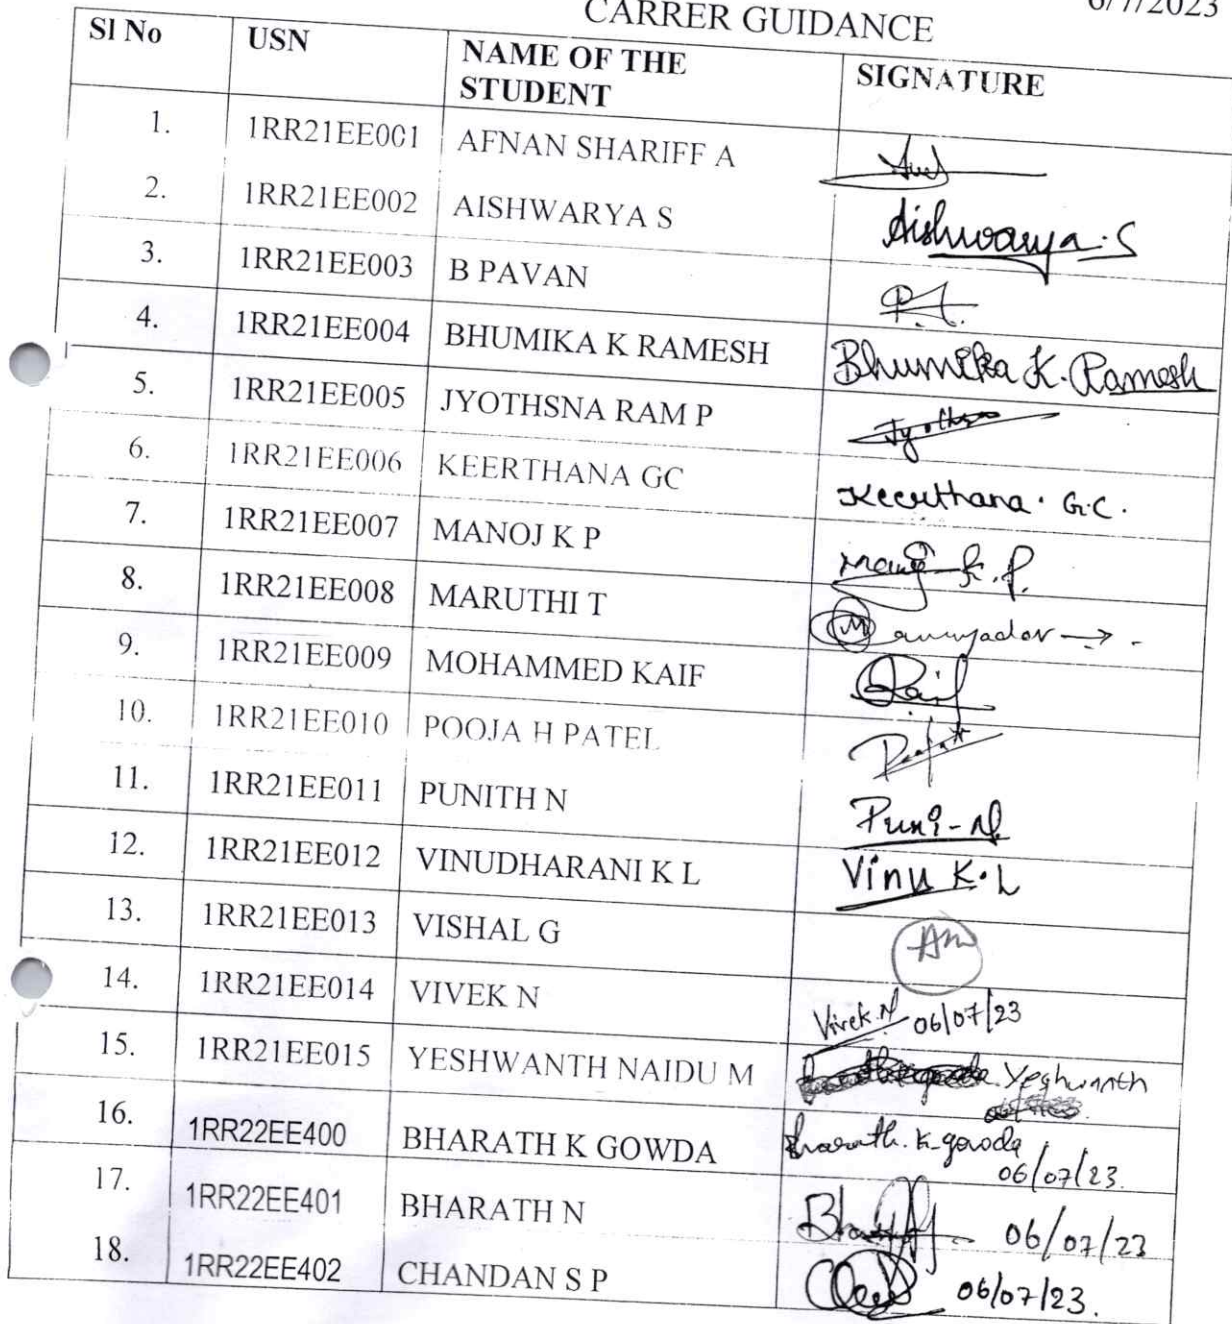 6/7/2023
CARRER GUIDANCE
Sl No USN NAME OF THE STUDENT SIGNATURE
1. 1RR21EE001 AFNAN SHARIFF A
2. 1RR21EE002 AISHWARYA S Aishwarya.S
3. 1RR21EE003 B PAVAN
4. 1RR21EE004 BHUMIKA K RAMESH Bhumika K. Ramesh
5. 1RR21EE005 JYOTHSNA RAM P
6. 1RR21EE006 KEERTHANA GC Keerthana. G.C.
7. 1RR21EE007 MANOJ K P Manoj K.P.
8. 1RR21EE008 MARUTHI T
9. 1RR21EE009 MOHAMMED KAIF Kaif
10. 1RR21EE010 POOJA H PATEL
11. 1RR21EE011 PUNITH N Puni-N
12. 1RR21EE012 VINUDHARANI K L Vinu K.L
13. 1RR21EE013 VISHAL G
14. 1RR21EE014 VIVEK N Vivek.N 06/07/23
15. 1RR21EE015 YESHWANTH NAIDU M Yeshwanth
16. 1RR22EE400 BHARATH K GOWDA Bharath.K.gowda 06/07/23.
17. 1RR22EE401 BHARATH N 06/07/23
18. 1RR22EE402 CHANDAN S P 06/07/23.